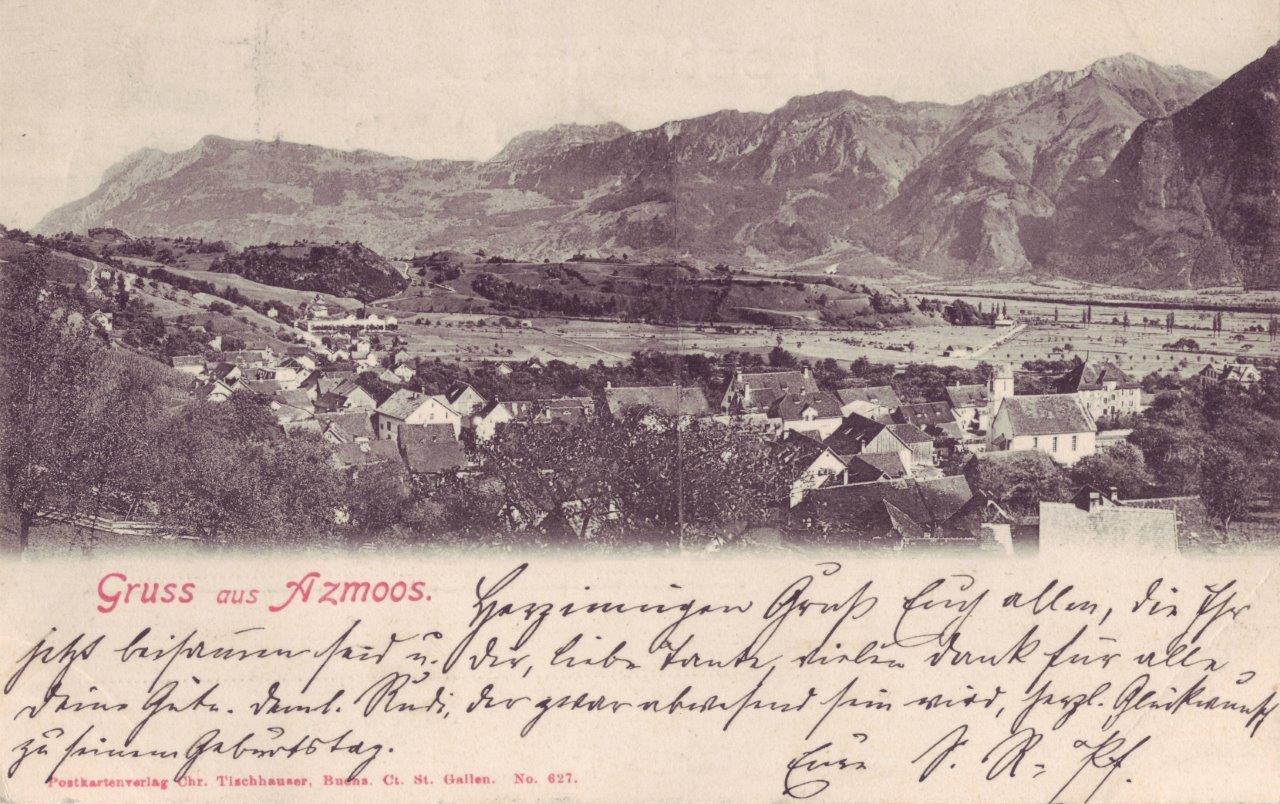 Gruss aus Azmoos.
Herzinnigen Gruß Euch allen, die Ihr
jetzt beisammen seid u. Dir, liebe Tante, vielen Dank für alle
Deine Güte. dem l. Rudi, der zwar abwesend sein wird, herzl. Glückwunsch
zu seinem Geburtstag.
Eure S. R. Pf.
Postkartenverlag Chr. Tischhauser, Buchs. Ct. St. Gallen. No. 627.